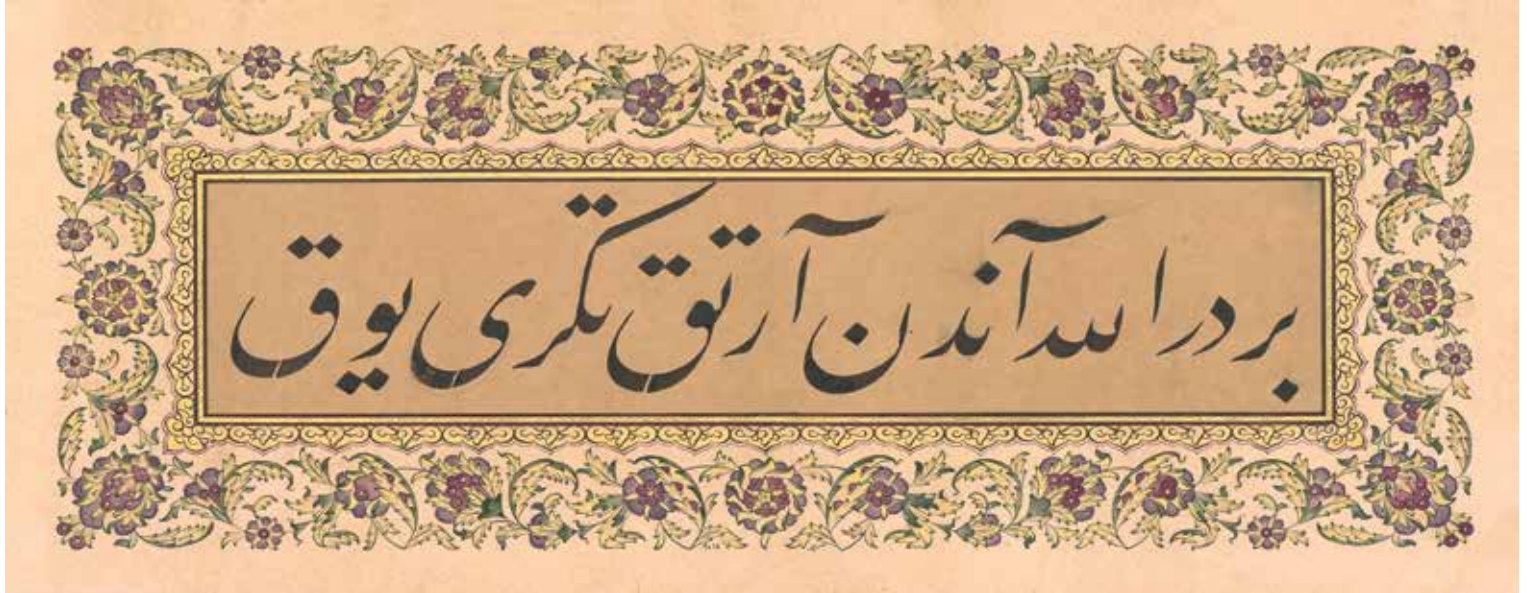 بر در الله آندن آرتق تكرى يوق